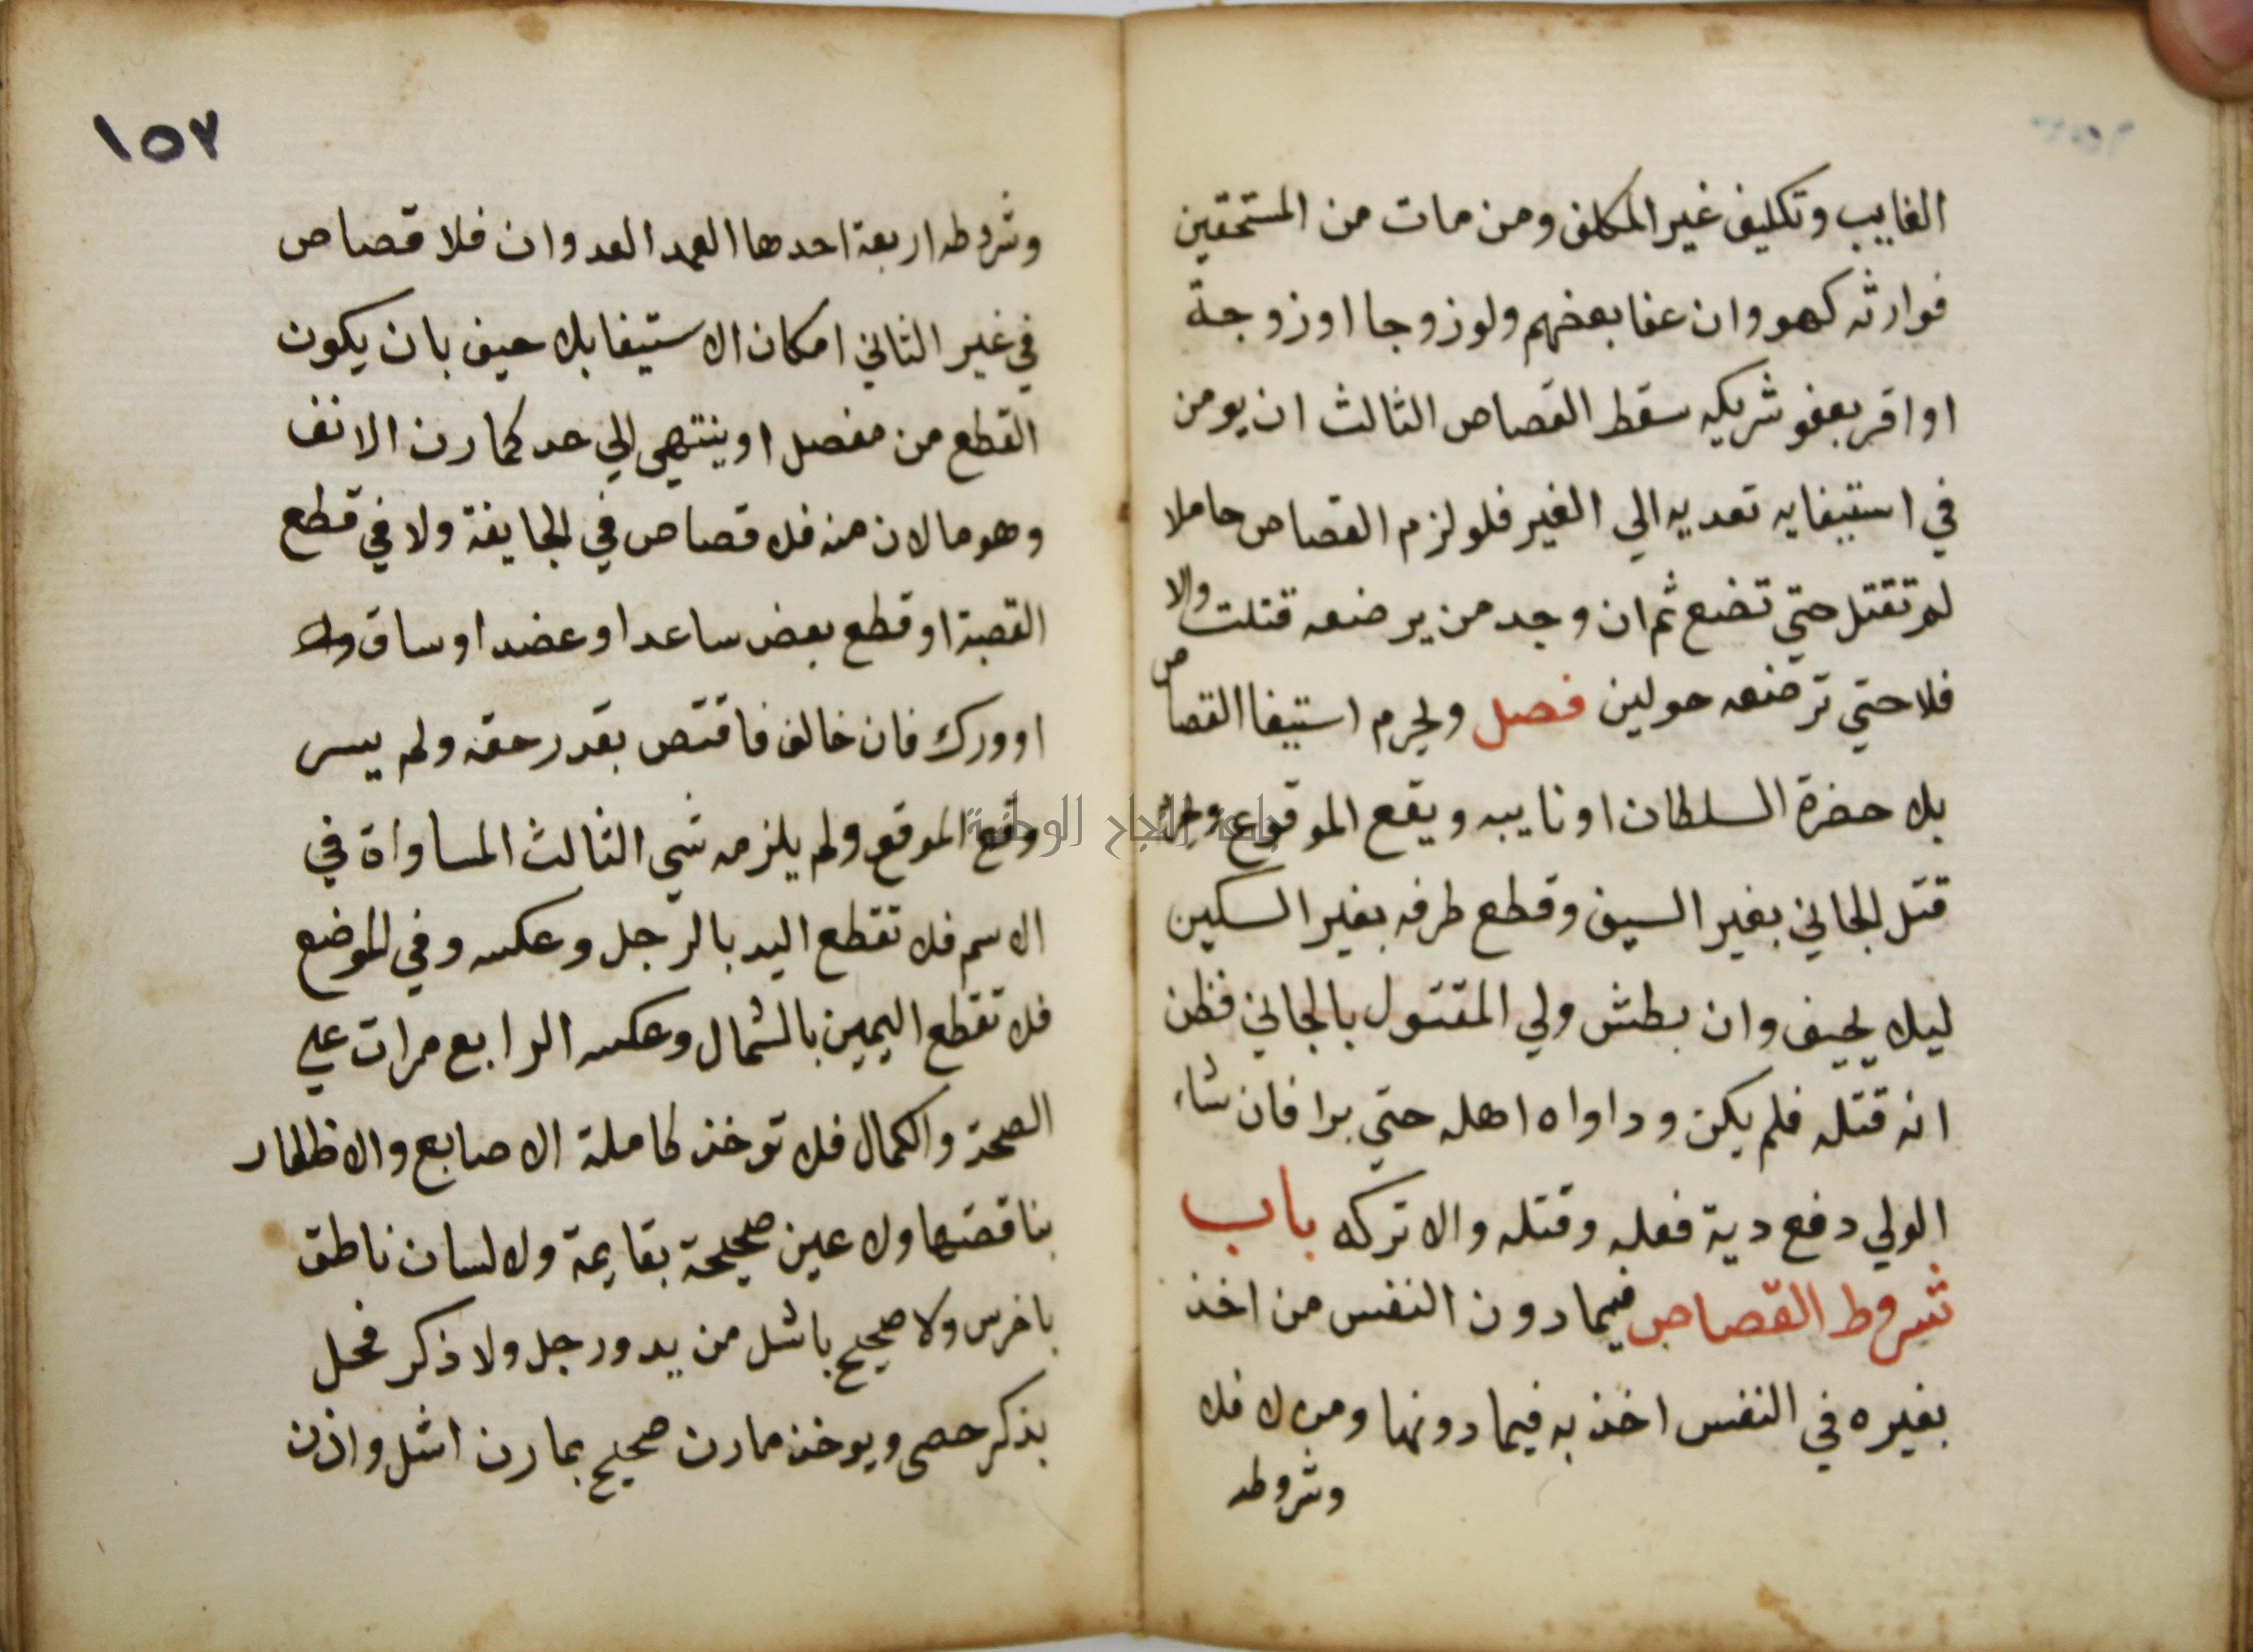 الغايب وتكليف غير المكلف ومن مات من المستحقين
فوارثه كهو وان عفا بعضهم ولو زوجا او زوجة
او اقر بعفو شريكه سقط القصاص الثالث ان يومن
في استيفايه تعديه الي الغير فلو لزم القصاص حاملا
لم تقتل حتي تضع ثم ان وجد من يرضعه قتلت والا
فلا حتي ترضعه حولين فصل ويحرم استيفا القصاص
بلا حضرة السلطان او نايبه ويقع الموقوع
قتل الجاني بغير السيف وقطع طرفه بغير السكين
ليلا يحيف وان بطش ولي المقتول بالجاني فظن
انه قتله فلم يكن وداواه اهله حتي برا فان شاء
الولي دفع دية فعله وقتله والا تركه باب
شروط القصاص فيما دون النفس من اخذ
بغيره في النفس اخذ به فيما دونها ومن لا فلا
وشروطه
١٥٧
وشروطه اربعة احدها العمد العدوان فلا قصاص
في غير الثاني امكان الاستيفا بلا حيف بان يكون
القطع من مفصل او ينتهي الي حد كمارن الانف
وهو ما لان منه فلا قصاص في الجايفة ولا في قطع
القصبة او قطع بعض ساعد او عضد او ساق
او ورك فان خالف فاقتص بقدر حقه ولم يسر
وقع الموقع ولم يلزمه شي الثالث المساواة في
الاسم فلا تقطع اليد بالرجل وعكسه وفي الموضع
فلا تقطع اليمين بالشمال وعكسه الرابع مرات علي
الصحة والكمال فلا توخذ كاملة الاصابع والاظفار
بناقصتها ولا عين صحيحة بقايمة ولا لسان ناطق
باخرس ولا صحيح باشل من يد ورجل ولا ذكر فحل
بذكر خصي ويوخذ مارن صحيح بمارن اشل واذن
جامعة النجاح الوطنية